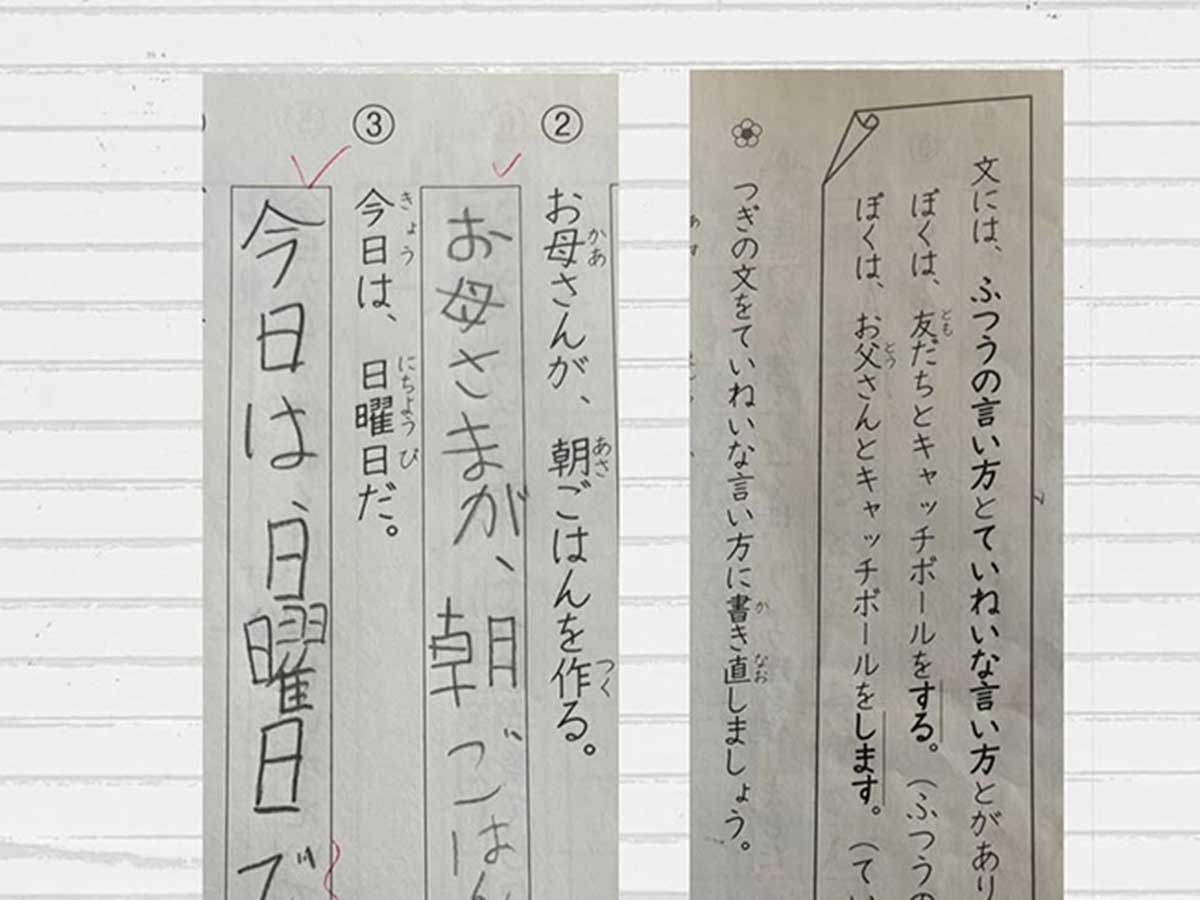 文には、ふつうの言い方とていねいな言い方とがあり
ぼくは、友だちとキャッチボールをする。（ふつうの
とも
ぼくは、お父さんとキャッチボールをします。（てい
とう
つぎの文をていねいな言い方に書き直しましょう。
か
なお
②
お母さんが、朝ごはんを作る。
かあ
あさ
つく
お母さまが、朝ごはん
③
今日は、日曜日だ。
きょう
にちようび
今日は、日曜日で